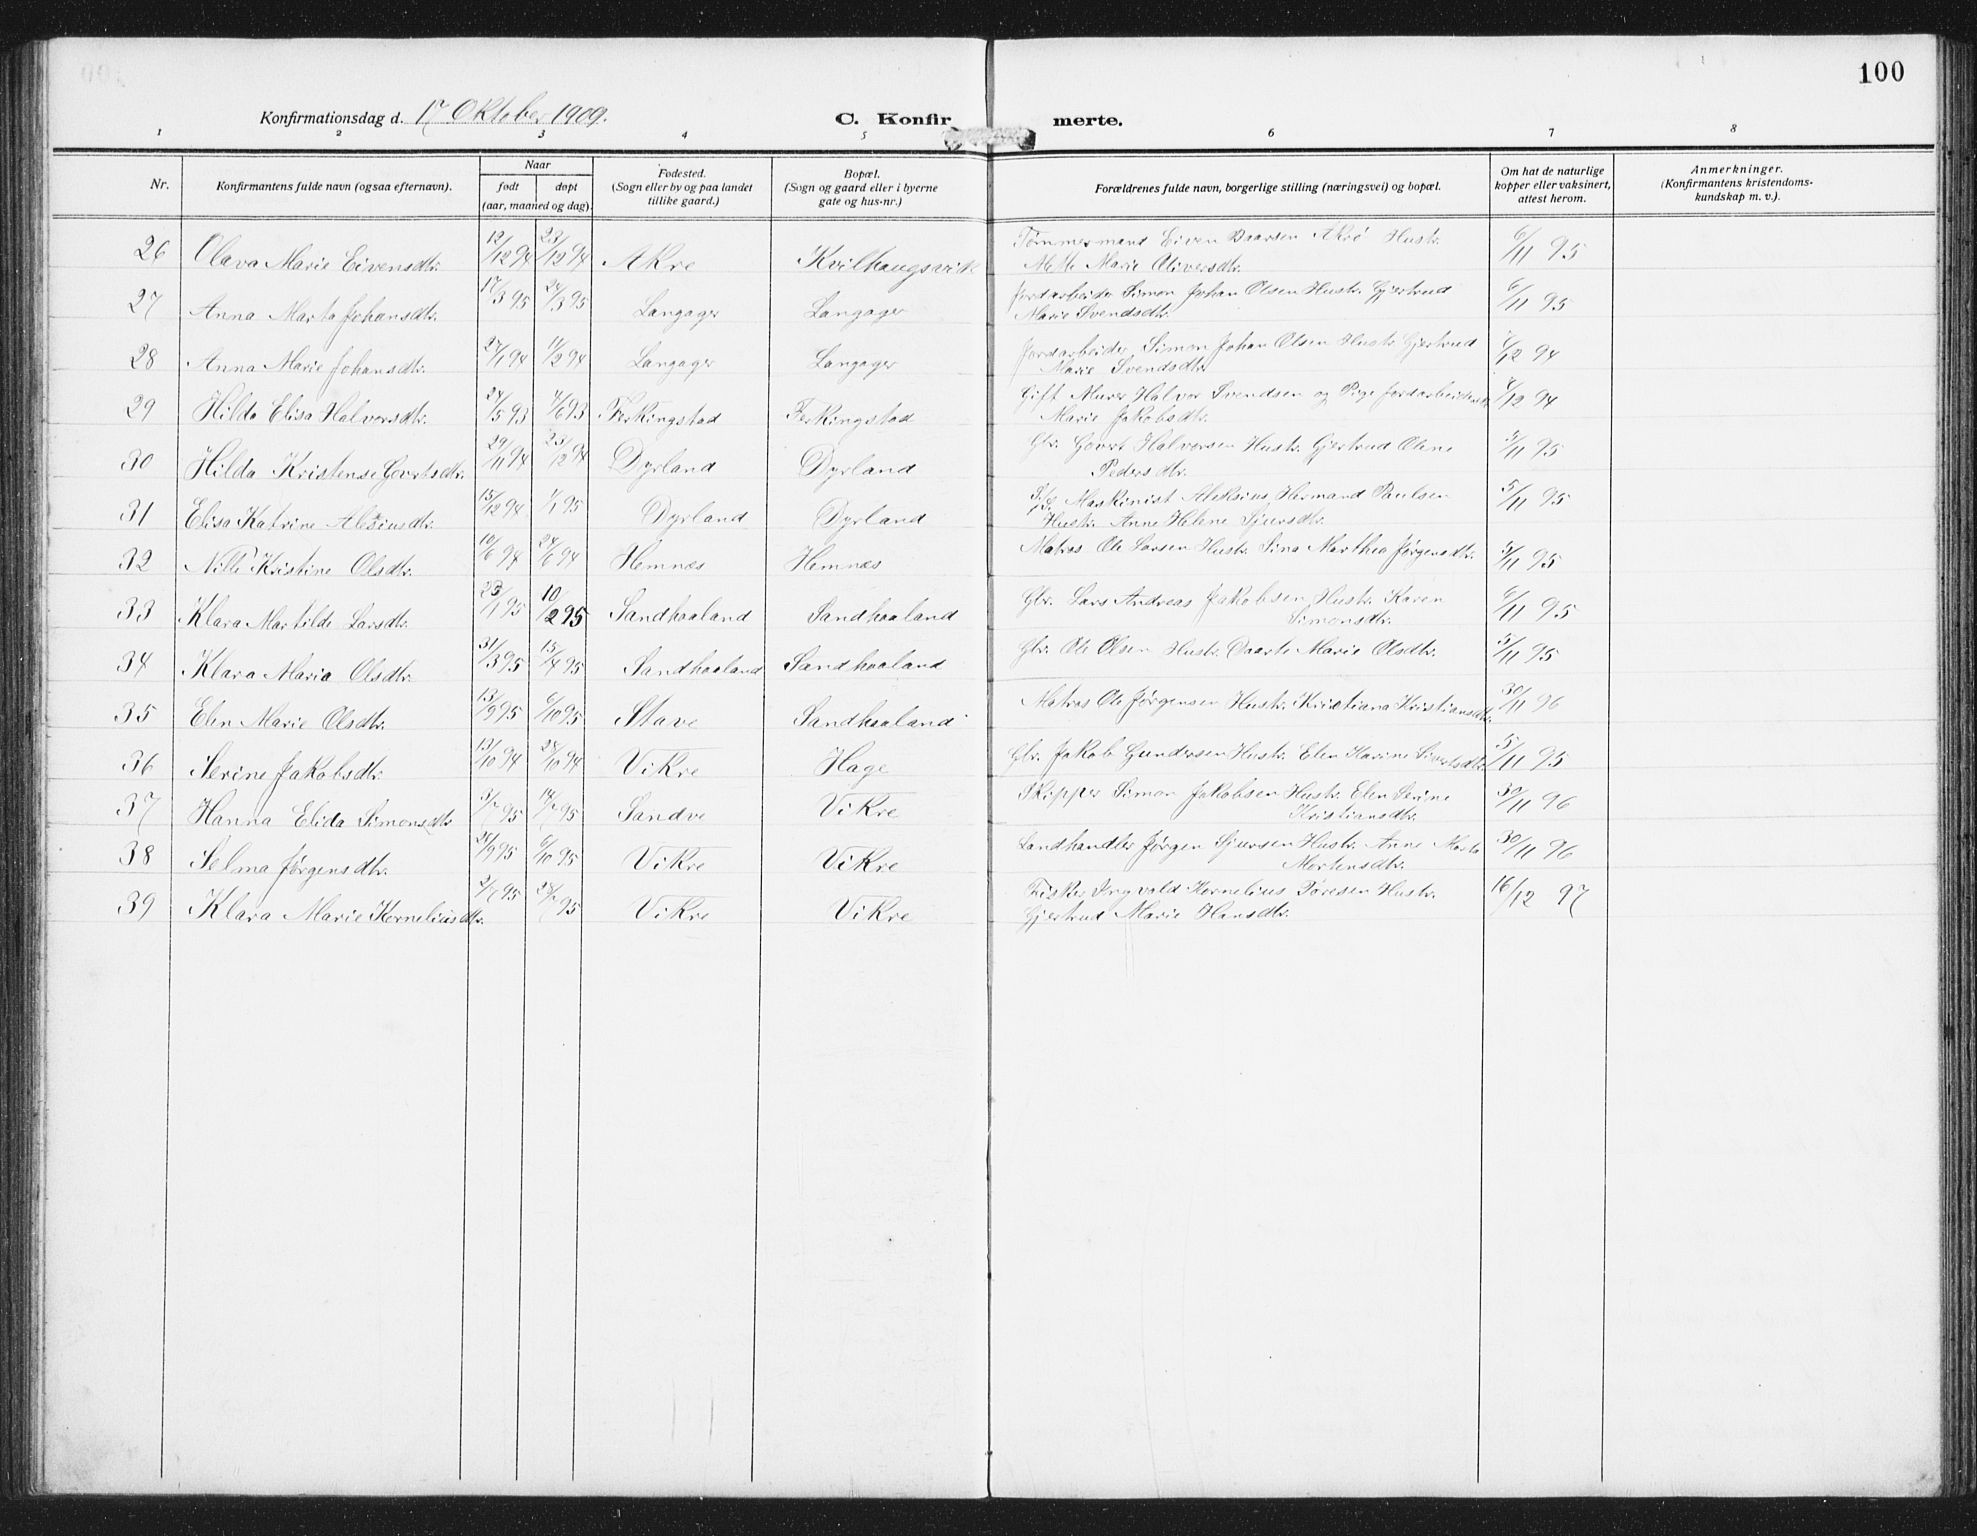 100
Konfirmationsdag d. 17 Oktober 1909.
C. Konfirmerte.
1 2 3 4 5 6 7 8
Nr.
Konfirmantens fulde navn (ogsaa efternavn).
Naar
født døpt
(aar, maaned og dag).
Fødested.
(Sogn eller by og paa landet
tillike gaard.)
Bopæl.
(Sogn og gaard eller i byerne
gate og hus-nr.)
Forældrenes fulde navn, borgerlige stilling (næringsvei) og bopæl.
Om hat de naturlige
kopper eller vaksinert,
attest herom.
Anmerkninger.
(Konfirmantens kristendoms-
kundskap m. v.).
26 Olava Marie Eivensdtr. 12/12 94 23/12 94 Akre Kvilhaugsvik Tømmermand Eiven Baarsen Akre Hustr. 6/11 95
Mette Marie Oliversdtr.
27 Anna Marta Johansdtr. 17/3 95 24/3 95 Langager Langager Jordarbeider Simon Johan Olsen Hustr. Gjertrud 6/11 95
Marie Svendsdtr.
28 Anna Marie Johansdtr. 27/1 94 11/2 94 Langager Langager Jordarbeider Simon Johan Olsen Hustr. Gjertrud /12 94
Marie Svendsdtr.
29 Hilda Elisa Halvorsdtr. 24/5 93 4/6 93 Ferkingstad Ferkingstad Gift Murer Halvor Svendsen og Pige Jordarbeiderske /12 94
Marie Jakobsdtr.
30 Hilda Kristense Govertsdtr. 29/11 94 25/12 94 Dyrland Dyrland Gbr. Govert Halvorsen Hustr. Gjertrud Oline 5/11 95
Pedersdtr.
31 Elisa Katrine Aleksiusdtr. 15/12 94 1/1 95 Dyrland Dyrland Maskinist Aleksius Hermand Paulsen 5/11 95
Hustr. Anne Helene Sjursdtr.
32 Nille Kristine Olsdtr. 10/6 94 24/6 94 Hemnæs Hemnæs Matros Ole Larsen Hustr. Sina Marthea Jørgensdtr. 5/11 95
33 Klara Martilde Larsdtr. 23/1 95 10/2 95 Sandhaaland Sandhaaland Gbr. Lars Andreas Jakobsen Hustr. Karen 6/11 95
Simonsdtr.
34 Klara Maria Olsdtr. 31/3 95 15/4 95 Sandhaaland Sandhaaland Gbr. Ole Olsen Hustr. Daarte Marie Olsdtr. 5/11 95
35 Elen Marie Olsdtr. 13/9 95 6/10 95 Stave Sandhaaland Matros Ole Jørgensen Hustr. Kristiana Kristiansdtr. 30/11 96
36 Serine Jakobsdtr. 13/10 94 28/10 94 Vikre Hage Gbr. Jakob Gundersen Hustr. Elen Karine Sivertsdtr. 5/11 95
37 Hanna Elida Simonsdtr 3/7 95 14/7 95 Sandve Vikre Skipper Simon Jakobsen Hustr. Elen Serine 30/11 96
Kristiansdtr.
38 Selma Jørgensdtr. 25/9 95 6/10 95 Vikre Vikre Landhandler Jørgen Sjursen Hustr. Anne Marta 30/11 96
Mortensdtr.
39 Klara Marie Korneliusdtr. 2/7 95 28/7 95 Vikre Vikre Fisker Ingvald Kornelius Tøresen Hustr. 16/12 97
Gjertrud Marie Hansdtr.